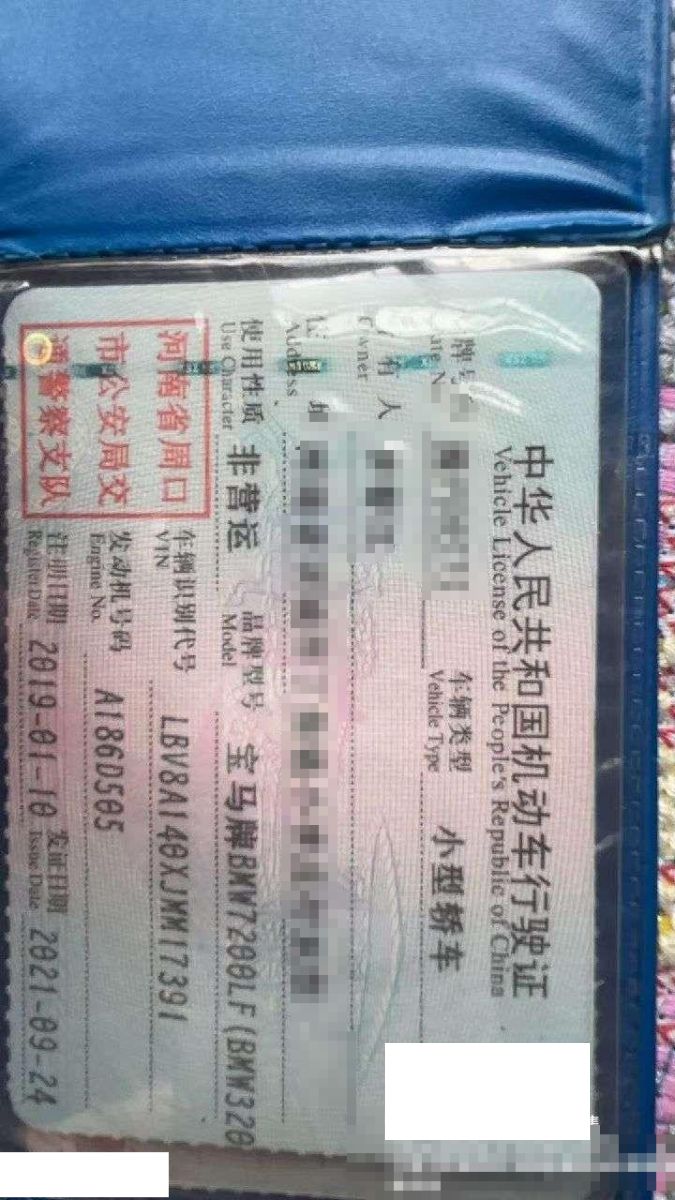 中华人民共和国机动车行驶证
Vehicle License of the People's Republic of China
牌号
车辆类型 小型轿车
Vehicle Type
有人
Owner
址
Address
使用性质 非营运 品牌型号 宝马牌BMW7200LF(BMW320
Use Character Model
车辆识别代号 LBV8A140XJMM17391
VIN
发动机号码 A186D505
Engine No.
注册日期 2019-01-10 发证日期 2021-09-24
Register Date Issue Date
河南省周口
市公安局交
通警察支队